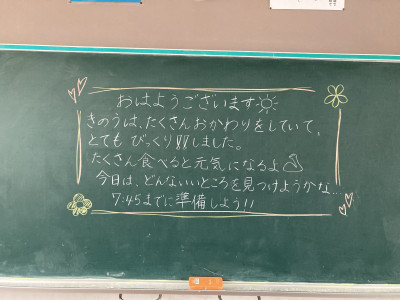 おはようございます
きのうは、たくさんおかわりをしていて、
とても びっくり!!しました。
たくさん食べると元気になるよ
今日は、どんないいところを見つけようかな…
7:45までに準備しよう!!